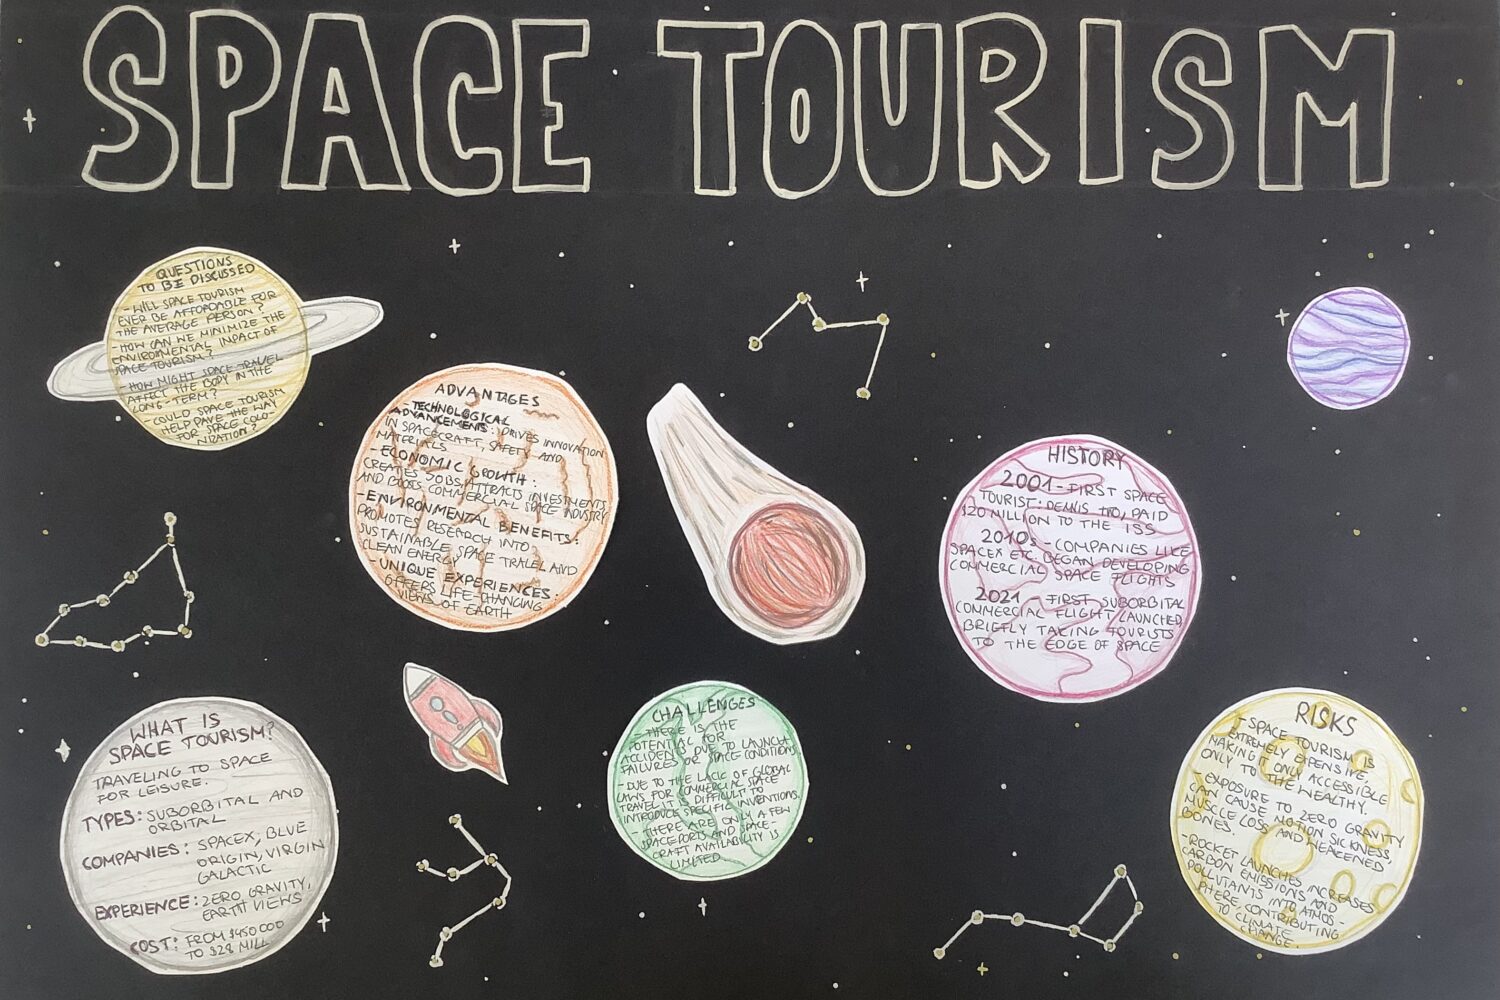 SPACE TOURISM
QUESTIONS
TO BE DISCUSSED
- WILL SPACE TOURISM
EVER BE AFFORDABLE FOR
THE AVERAGE PERSON?
- HOW CAN WE MINIMIZE THE
ENVIRONMENTAL IMPACT OF
SPACE TOURISM?
- HOW MIGHT SPACE TRAVEL
AFFECT THE BODY IN THE
LONG-TERM?
- COULD SPACE TOURISM
HELP PAVE THE WAY
FOR SPACE COLO-
NIZATION?
ADVANTAGES
- TECHNOLOGICAL
ADVANCEMENTS: DRIVES INNOVATION
IN SPACECRAFT, SAFETY AND
MATERIALS
- ECONOMIC GROWTH:
CREATES JOBS, ATTRACTS INVESTMENTS
AND BOOSTS COMMERCIAL SPACE INDUSTRY
- ENVIRONMENTAL BENEFITS:
PROMOTES RESEARCH INTO
SUSTAINABLE SPACE TRAVEL AND
CLEAN ENERGY
- UNIQUE EXPERIENCES:
OFFERS LIFE-CHANGING
VIEWS OF EARTH
HISTORY
2001 - FIRST SPACE
TOURIST: DENNIS TITO, PAID
$20 MILLION TO THE ISS
2010s - COMPANIES LIKE
SPACEX ETC. BEGAN DEVELOPING
COMMERCIAL SPACE FLIGHTS
2021 - FIRST SUBORBITAL
COMMERCIAL FLIGHT LAUNCHED,
BRIEFLY TAKING TOURISTS
TO THE EDGE OF SPACE
WHAT IS
SPACE TOURISM?
TRAVELING TO SPACE
FOR LEISURE.
TYPES: SUBORBITAL AND
ORBITAL
COMPANIES: SPACEX, BLUE
ORIGIN, VIRGIN
GALACTIC
EXPERIENCE: ZERO GRAVITY,
EARTH VIEWS
COST: FROM $450 000
TO $28 MILL
CHALLENGES
- THERE IS THE
POTENTIAL FOR
ACCIDENTS DUE TO LAUNCH
FAILURES OR SPACE CONDITIONS
- DUE TO THE LACK OF GLOBAL
LAWS FOR COMMERCIAL SPACE
TRAVEL IT IS DIFFICULT TO
INTRODUCE SPECIFIC INVENTIONS.
- THERE ARE ONLY A FEW
SPACEPORTS AND SPACE-
CRAFT AVAILABILITY IS
LIMITED
RISKS
- SPACE TOURISM IS
EXTREMELY EXPENSIVE,
MAKING IT ONLY ACCESSIBLE
ONLY TO THE WEALTHY.
- EXPOSURE TO ZERO GRAVITY
CAN CAUSE MOTION SICKNESS,
MUSCLE LOSS AND WEAKENED
BONES.
- ROCKET LAUNCHES INCREASES
CARBON EMISSIONS AND
POLLUTANTS INTO ATMOS-
PHERE CONTRIBUTING
TO CLIMATE
CHANGE.